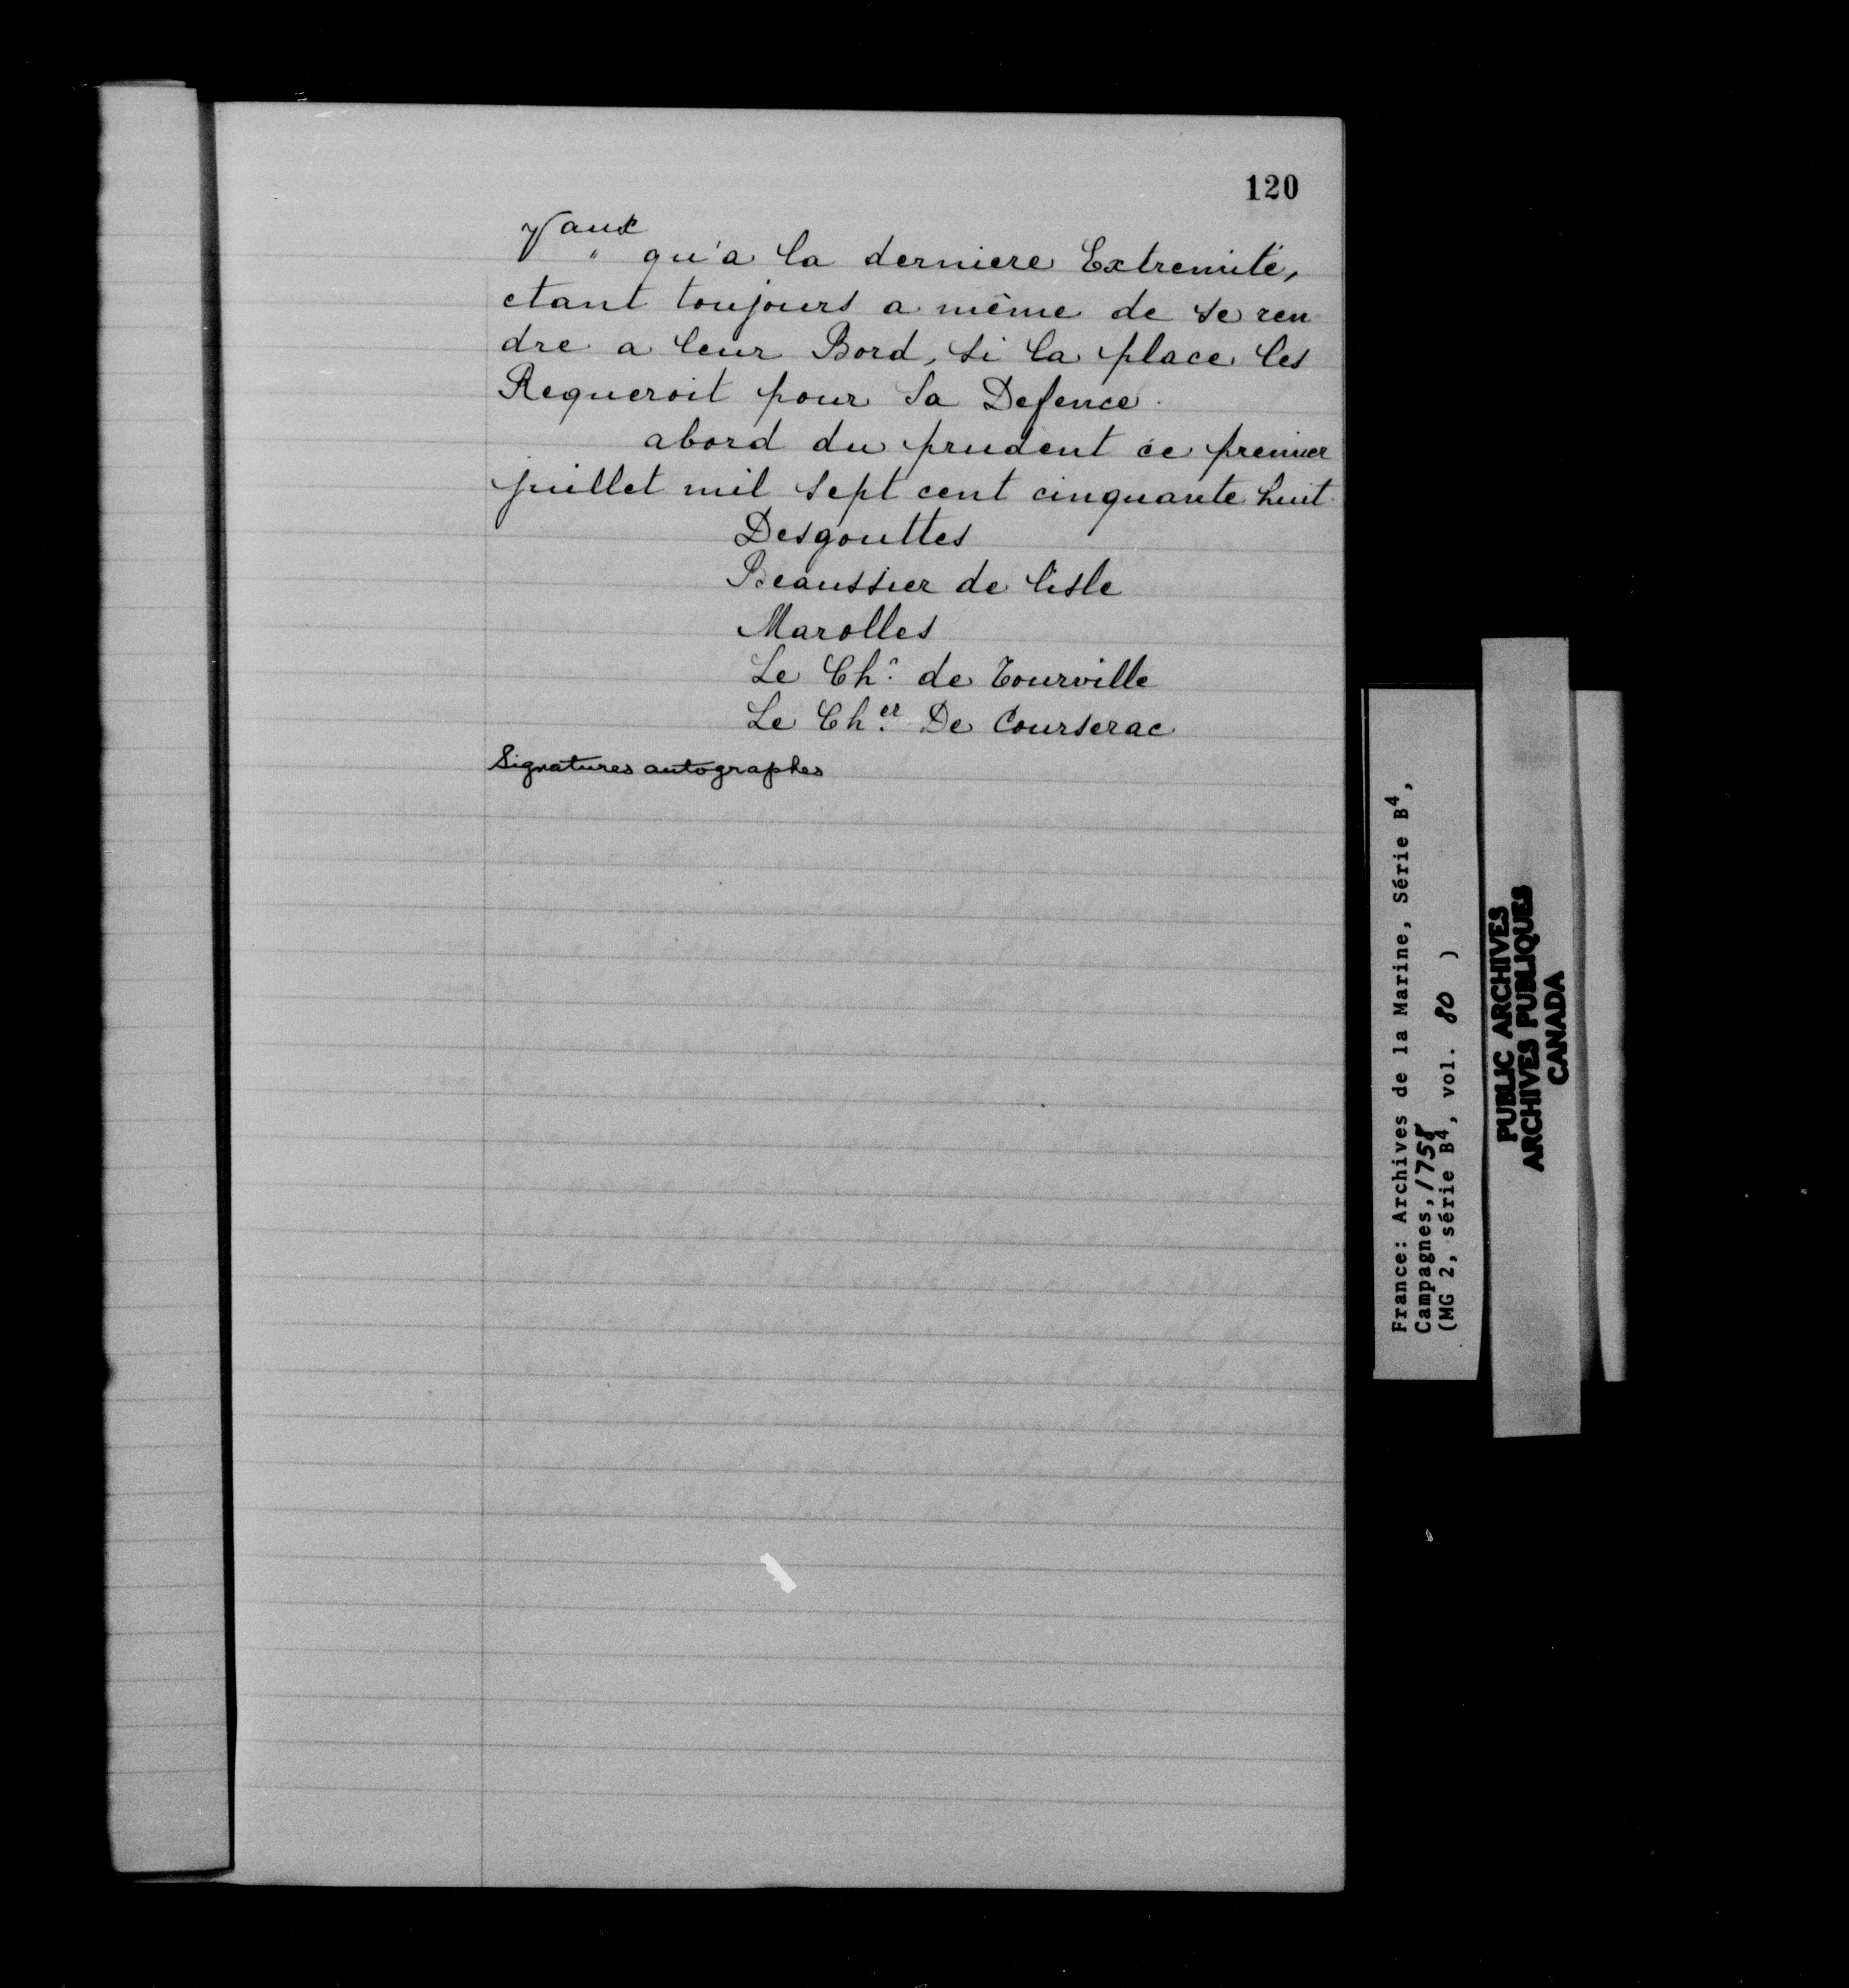 120
Vaux qu'a la derniere Extremité,
etant toujours a même de se ren
dre a leur Bord, si la place les
Requeroit pour sa Defence.
abord du prudent ce premier
juillet mil sept cent cinquante huit.
Desgouttes
Beaussier de lisle
Marolles
Le Chr. de Tourville
Le Cher. De Courserac
Signatures autographes
France: Archives de la Marine, Série B4,
Campagnes, 1758
(MG 2, série B4, vol. 80 )
PUBLIC ARCHIVES
ARCHIVES PUBLIQUES
CANADA